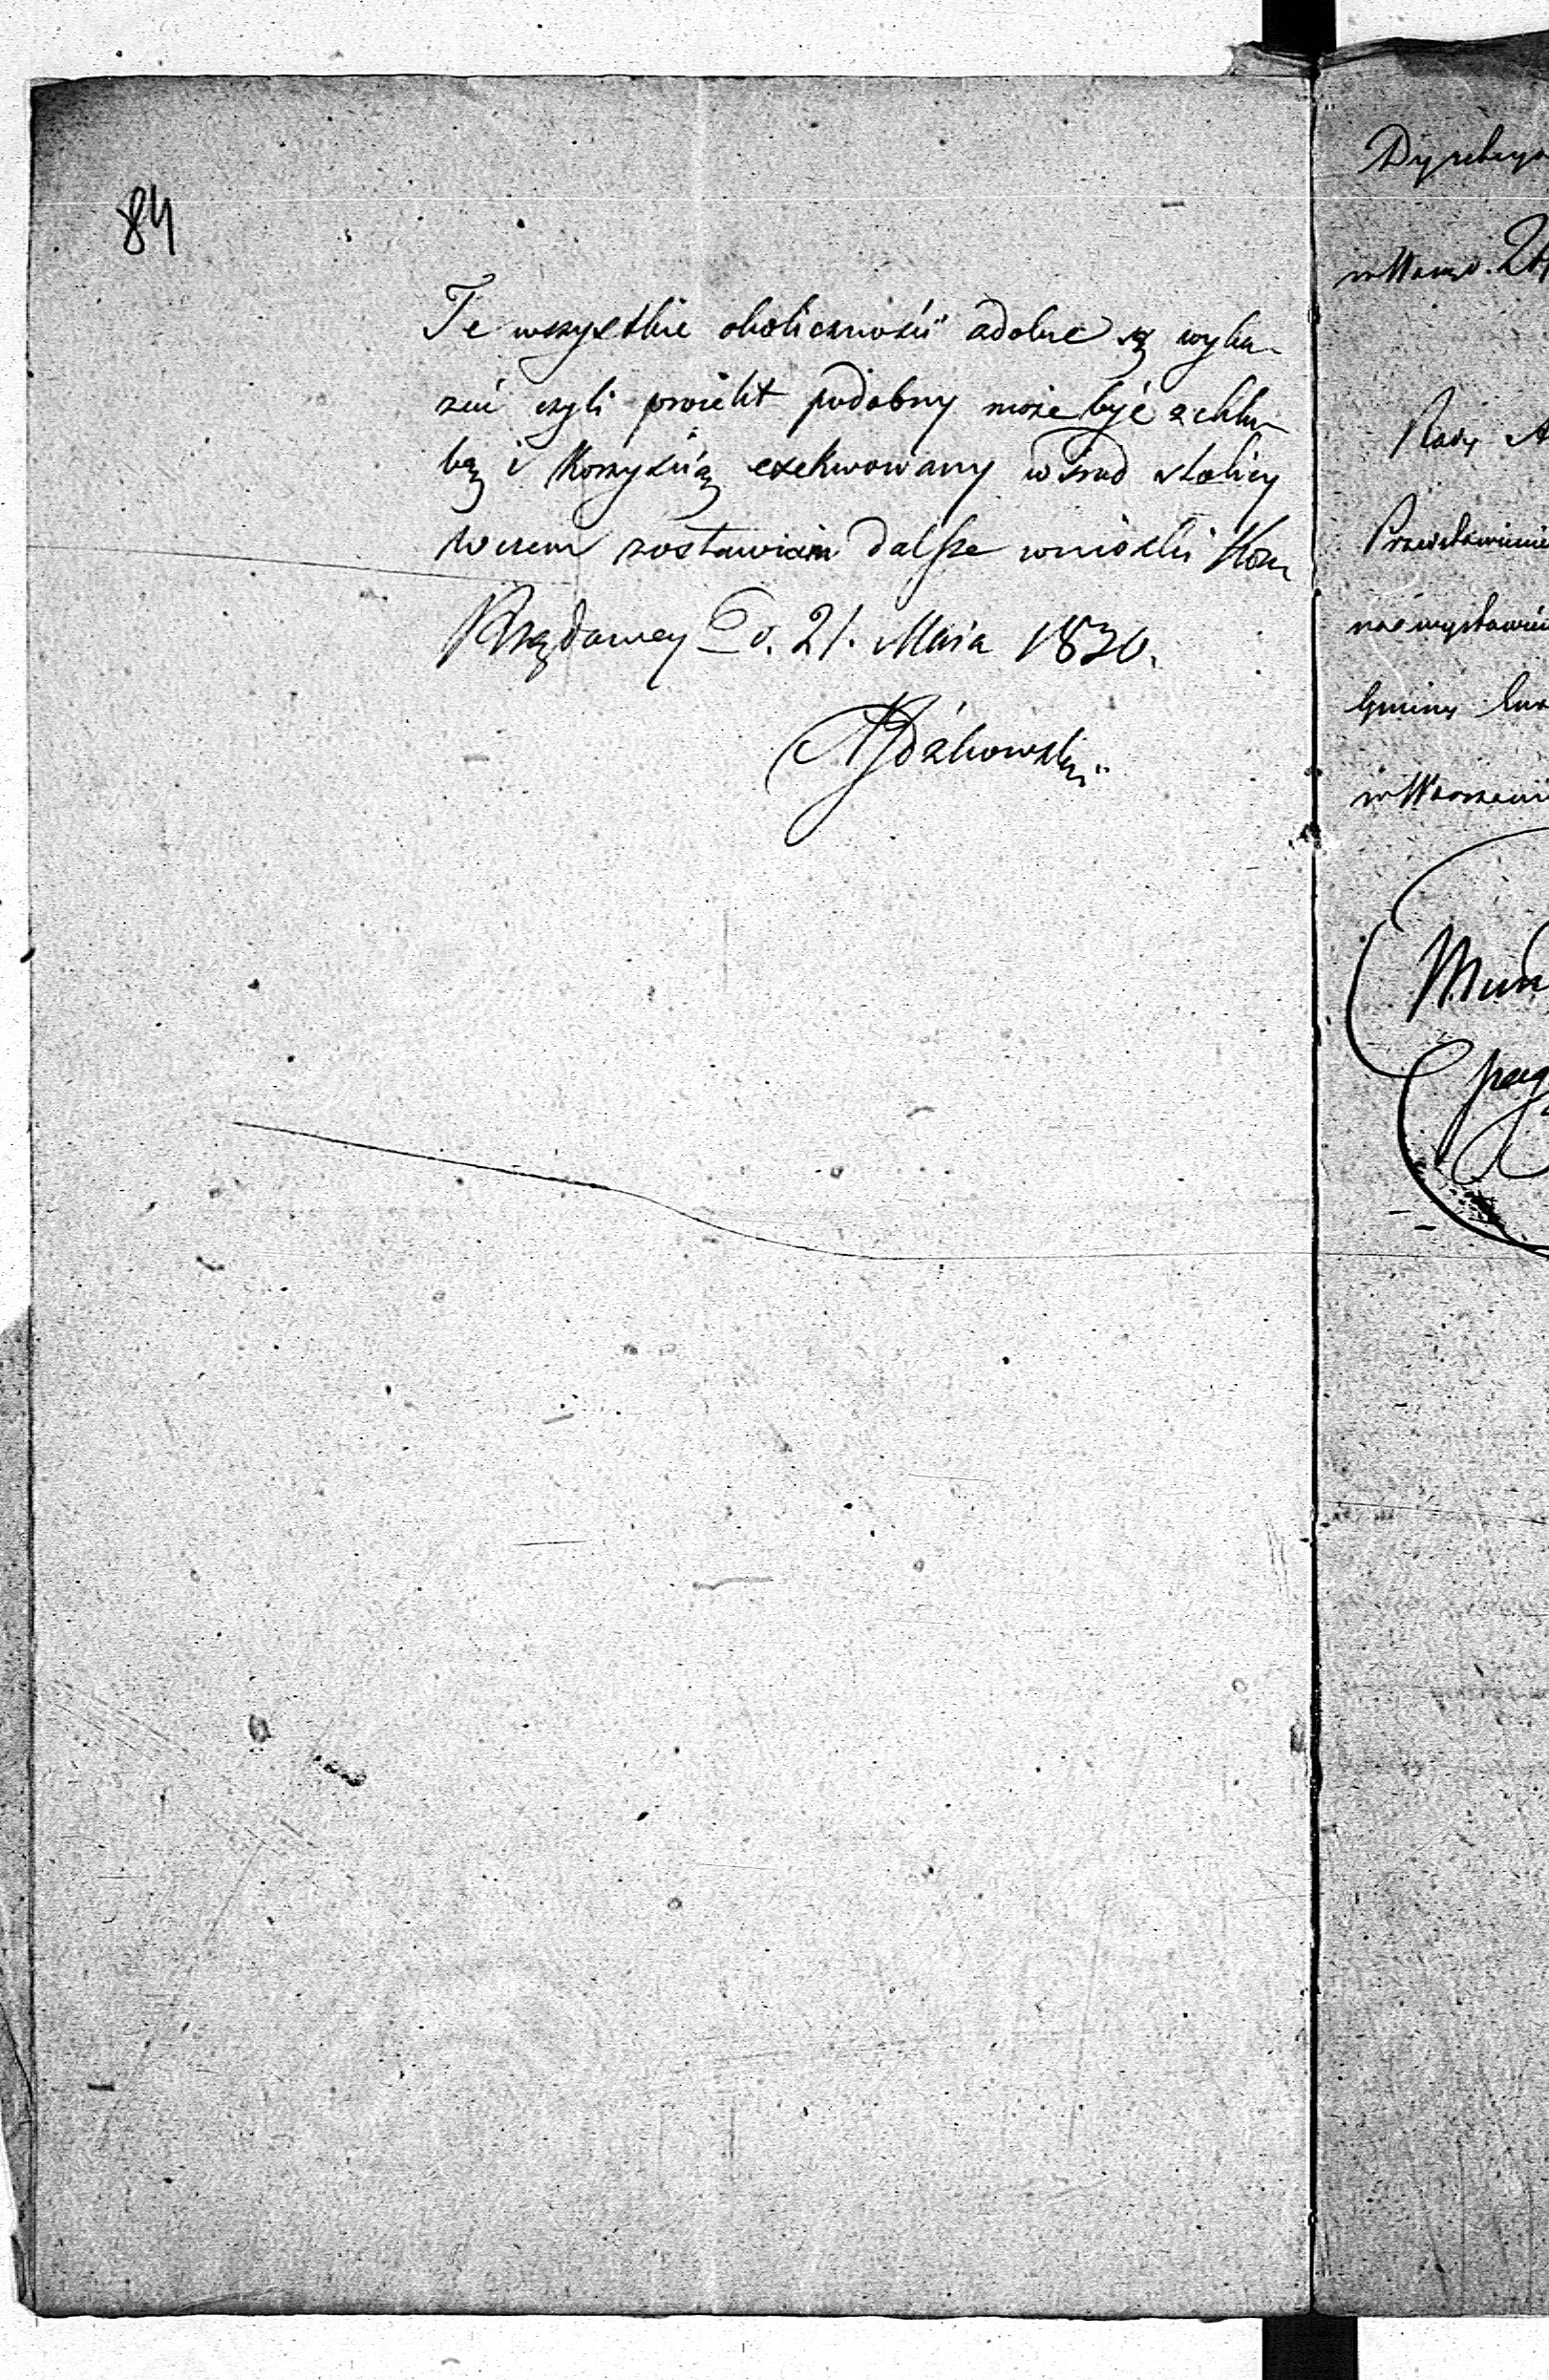 84
Te wszystkie okoliczności zdolne są wyka-
zać czyli proiekt podobny może być z chlu-
bą i korzyścią exekwowany wśrod stolicy
zostawiam dalsze wnioski Kom
Rządowey D. 21. Maia 1830.
Dyrekcya
w Warsz.
Rady
Przedstawienie
na wystawieni
Gminy
w Warszawi